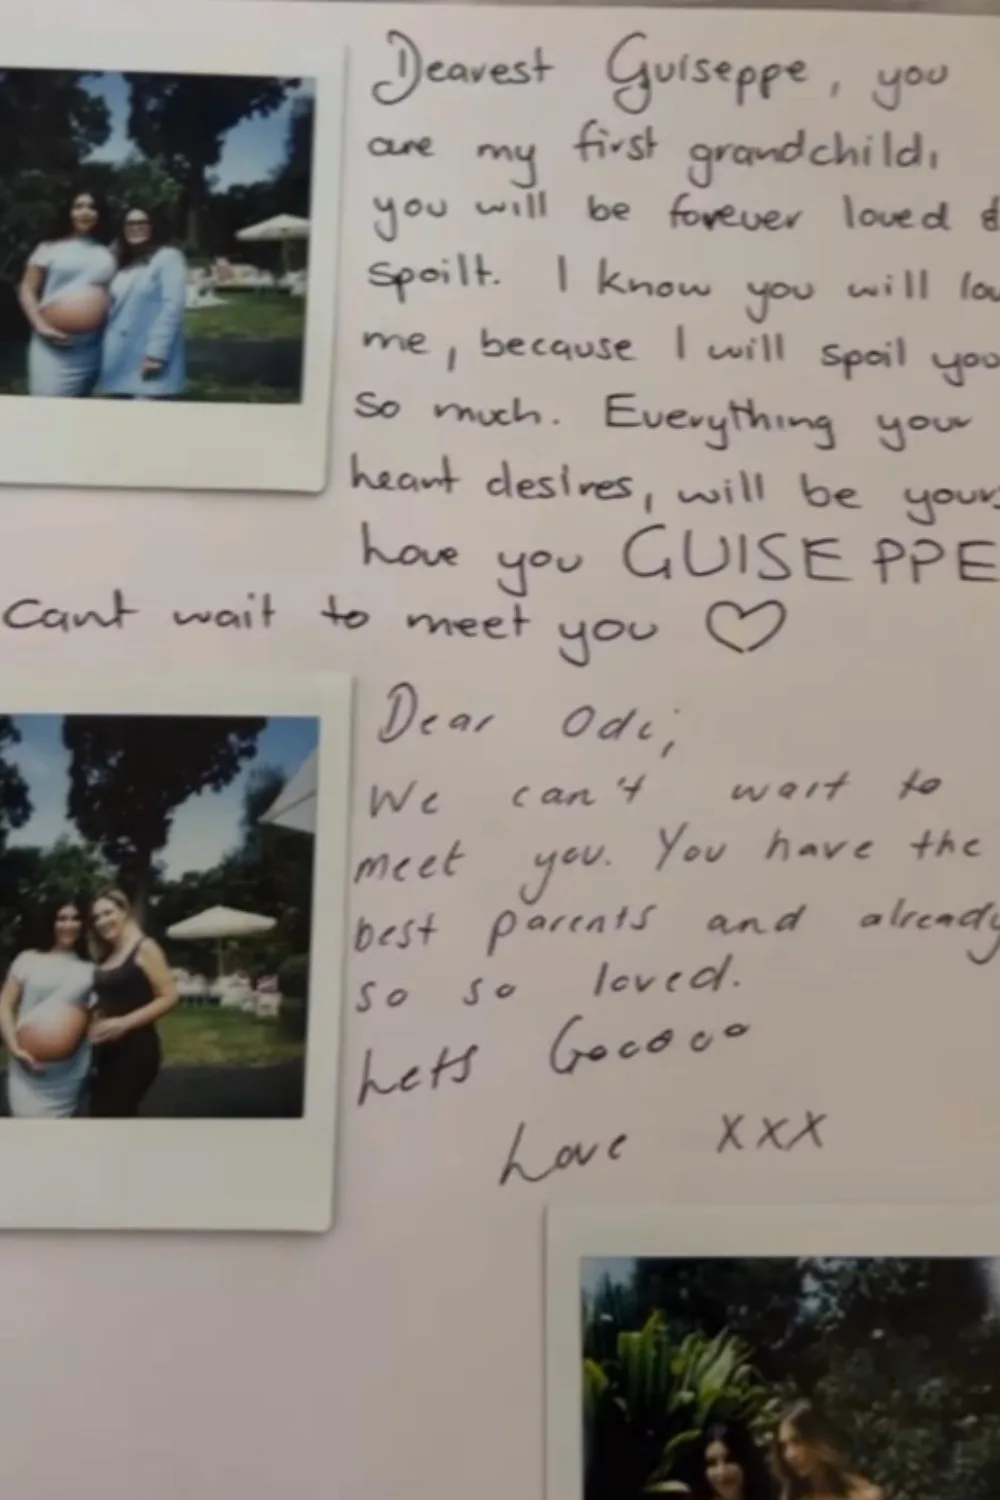 Dearest Guiseppe, you
are my first grandchild,
you will be forever loved &
spoilt. I know you will lov
me, because I will spoil you
so much. Everything your
heart desires, will be yours
Love you GUISEPPE
cant wait to meet you ♡
Dear Odi,
We can't wait to
meet you. You have the
best parents and already
so so loved.
Lets Gooooo
Love XXX